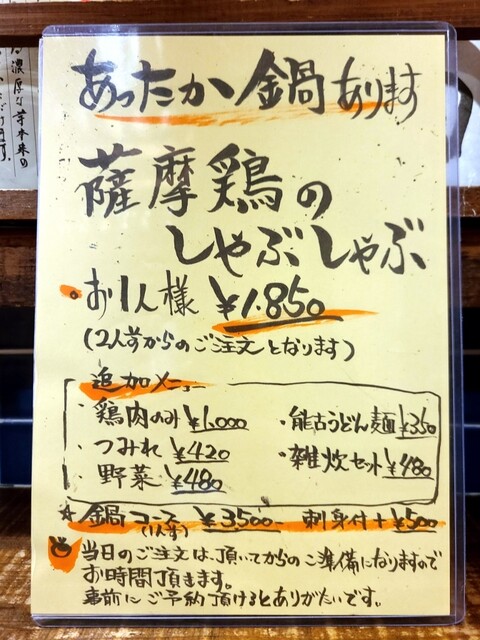 あったか鍋あります
薩摩鶏の
しゃぶしゃぶ
お1人様 ¥1.850
(2人前からのご注文となります)
追加メニュー
・鶏肉のみ ¥1,000
・つみれ ¥420
・野菜 ¥480
・能古うどん麺 ¥350
・雑炊セット ¥480
☆鍋コース ¥3,500- 刺身付+¥500
当日のご注文は、頂いてからのご準備になりますので
お時間頂きます。
事前にご予約頂けるとありがたいです。
の